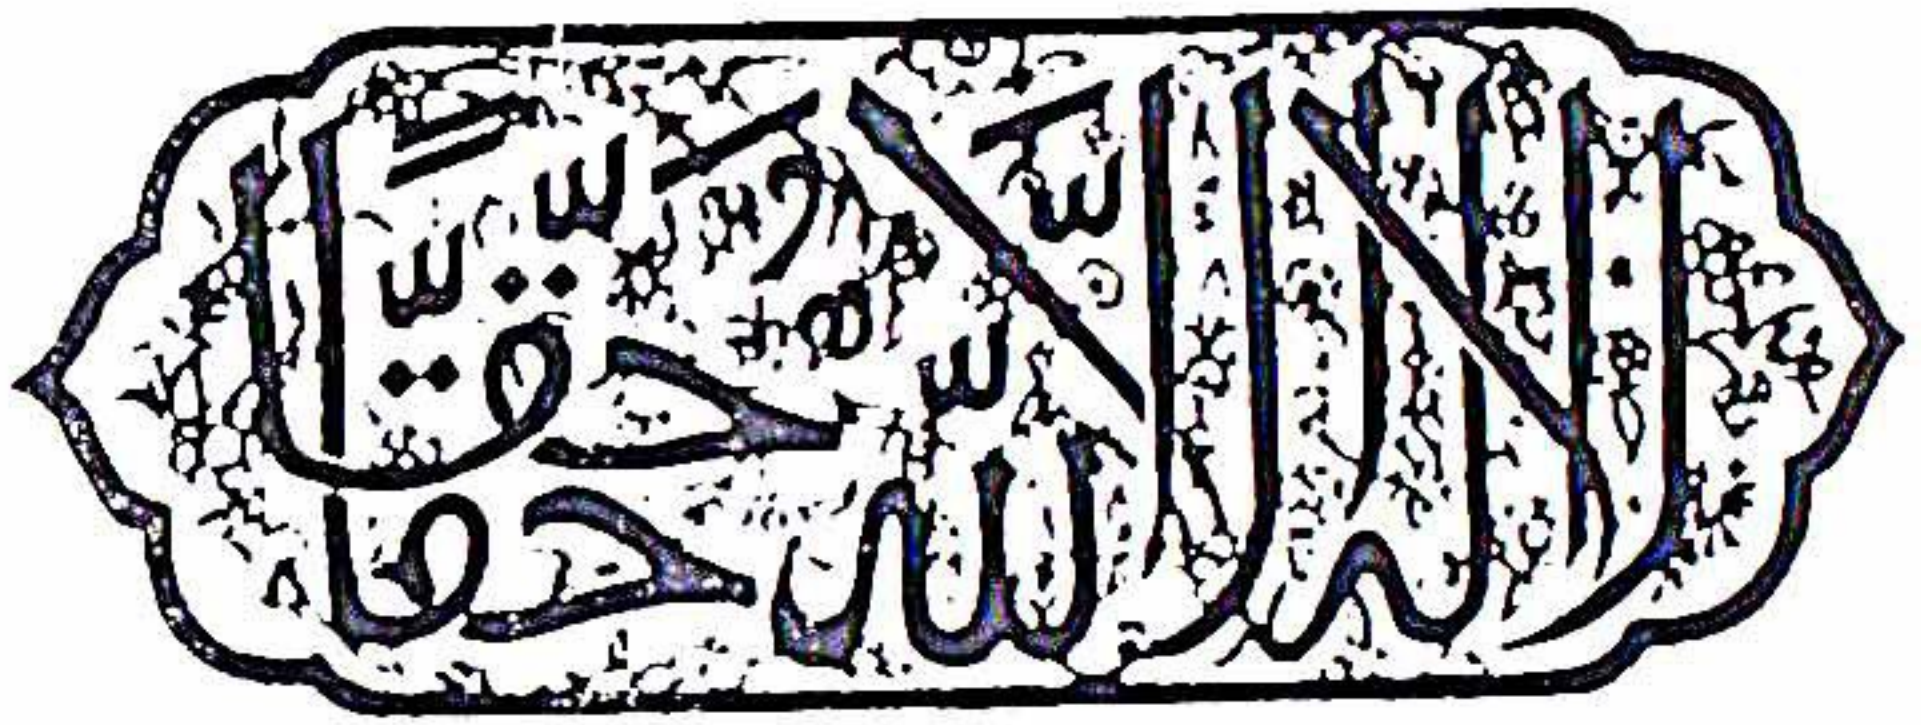 لا اله الا الله حقا حقا